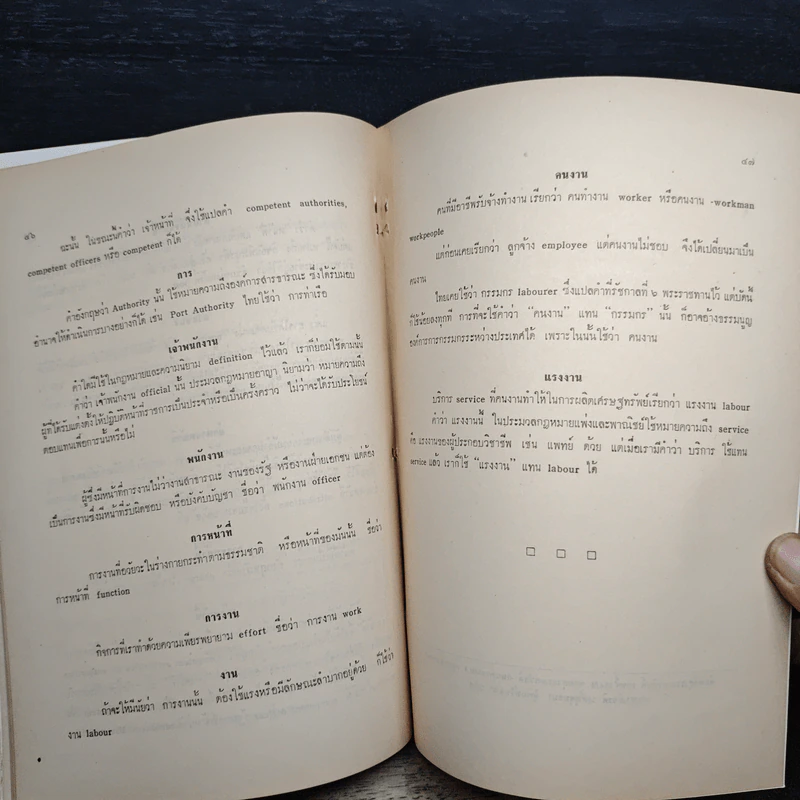 ๔๖
ฉะนั้น ในขณะนี้คำว่า เจ้าหน้าที่ จึงใช้แปลคำ competent authorities,
competent officers หรือ competent ก็ได้
การ
คำอังกฤษว่า Authority นั้น ใช้หมายความถึงองค์การสาธารณะ ซึ่งได้รับมอบ
อำนาจให้ดำเนินการบางอย่างก็ได้ เช่น Port Authority ไทยใช้ว่า การท่าเรือ
เจ้าพนักงาน
คำใดมีใช้ในกฎหมายและความนิยาม definition ไว้แล้ว เราก็ย่อมใช้ตามนั้น
คำว่า เจ้าพนักงาน official นั้น ประมวลกฎหมายอาญา นิยามว่า หมายความถึง
ผู้ที่ได้รับแต่งตั้งให้ปฏิบัติหน้าที่ราชการเป็นประจำหรือเป็นครั้งคราว ไม่ว่าจะได้รับประโยชน์
ตอบแทนเพื่อการนั้นหรือไม่
พนักงาน
ผู้ซึ่งมีหน้าที่การงานไม่ว่างานสาธารณะ งานของรัฐ หรืองานฝ่ายเอกชน แต่ต้อง
เป็นการงานซึ่งมีหน้าที่รับผิดชอบ หรือบังคับบัญชา ชื่อว่า พนักงาน officer
การหน้าที่
การงานที่อวัยวะในร่างกายกระทำตามธรรมชาติ หรือหน้าที่ของมันนั้น ชื่อว่า
การหน้าที่ function
การงาน
กิจการที่เราทำด้วยความเพียรพยายาม effort ชื่อว่า การงาน work
งาน
ถ้าจะให้มีนัยว่า การงานนั้น ต้องใช้แรงหรือมีลักษณะลำบากอยู่ด้วย ก็ใช้ว่า
งาน labour
๔๗
คนงาน
คนที่มีอาชีพรับจ้างทำงาน เรียกว่า คนทำงาน worker หรือคนงาน -workman
workpeople
แต่ก่อนเคยเรียกว่า ลูกจ้าง employee แต่คนงานไม่ชอบ จึงได้เปลี่ยนมาเป็น
คนงาน
ไทยเคยใช้ว่า กรรมกร labourer ซึ่งแปลคำที่รัชกาลที่ ๖ พระราชทานไว้ แต่บัดนี้
ก็ใช้น้อยลงทุกที การที่จะใช้คำว่า “คนงาน” แทน “กรรมกร” นั้น ก็อาจอ้างธรรมนูญ
องค์การการกรรมกรระหว่างประเทศได้ เพราะในนั้นใช้ว่า คนงาน
แรงงาน
บริการ service ที่คนงานทำให้ในการผลิตเศรษฐทรัพย์เรียกว่า แรงงาน labour
คำว่า แรงงานนี้ ในประมวลกฎหมายแพ่งและพาณิชย์ใช้หมายความถึง service
คือ แรงงานของผู้ประกอบวิชาชีพ เช่น แพทย์ ด้วย แต่เมื่อเรามีคำว่า บริการ ใช้แทน
service แล้ว เราก็ใช้ “แรงงาน” แทน labour ได้